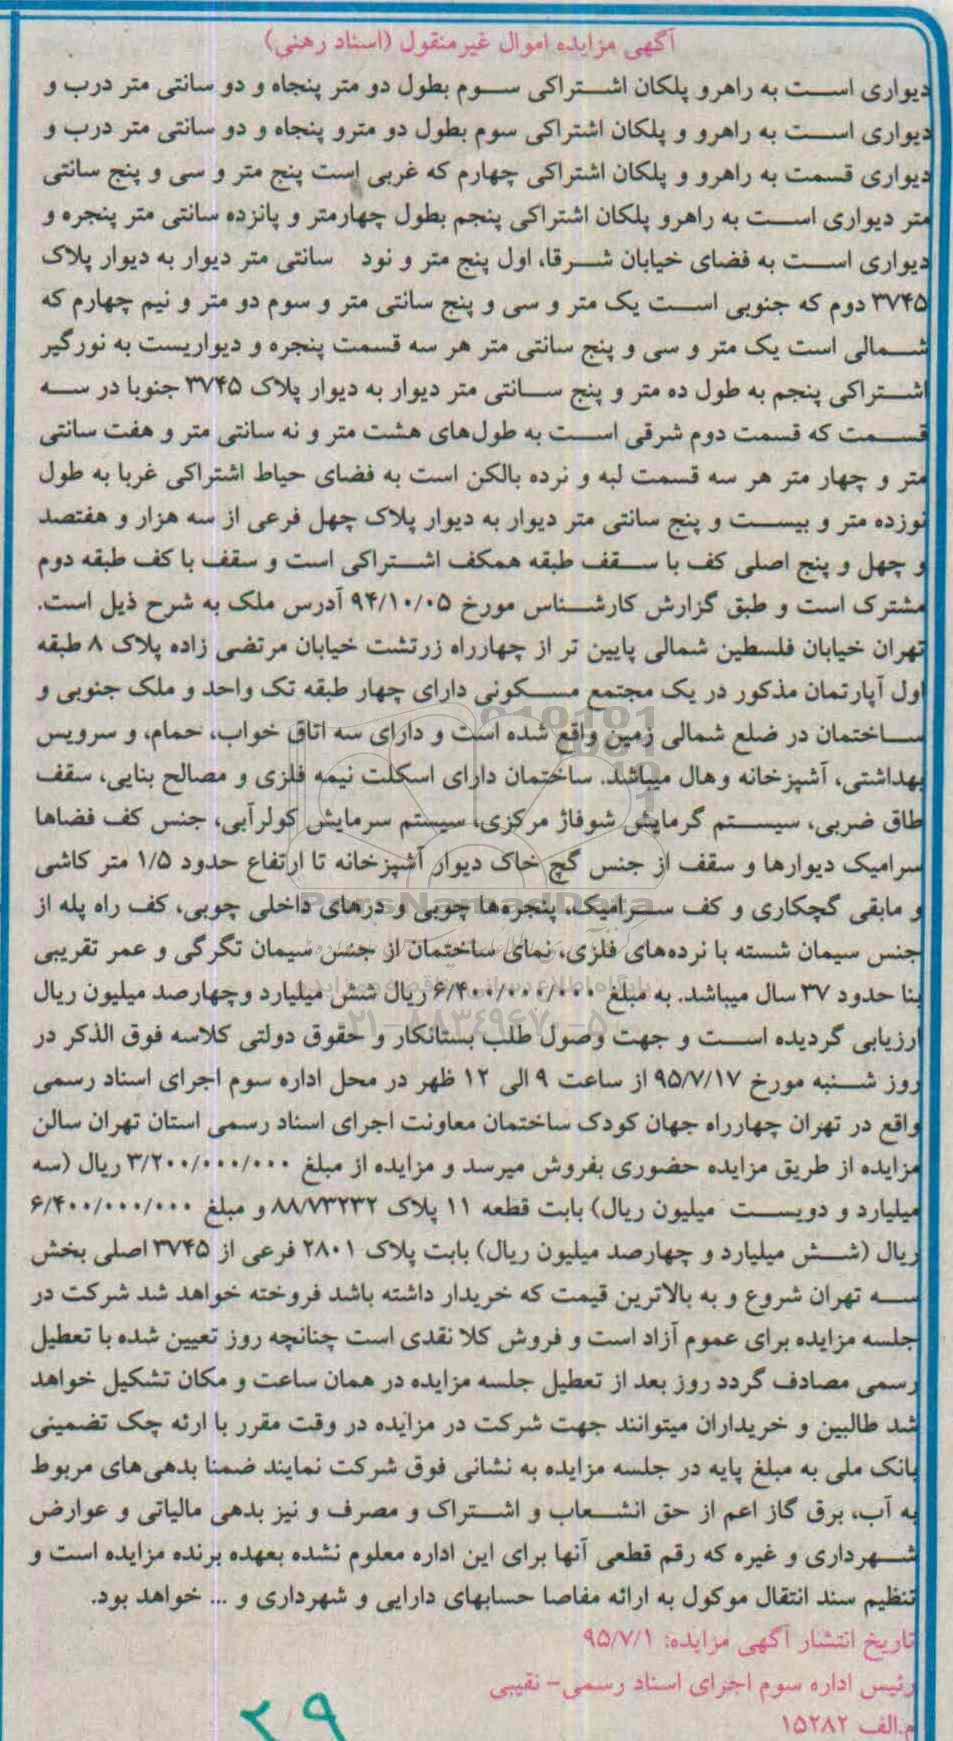 آگهی مزایده اموال غیرمنقول (اسناد رهنی)
دیواری است به راهرو پلکان اشتراکی سوم بطول دو متر پنجاه و دو سانتی متر درب و
دیواری است به راهرو و پلکان اشتراکی سوم بطول دو مترو پنجاه و دو سانتی متر درب و
دیواری قسمت به راهرو و پلکان اشتراکی چهارم که غربی است پنج متر و سی و پنج سانتی
متر دیواری است به راهرو پلکان اشتراکی پنجم بطول چهارمتر و پانزده سانتی متر پنجره و
دیواری است به فضای خیابان شرقا، اول پنج متر و نود سانتی متر دیوار به دیوار پلاک
۳۷۴۵ دوم که جنوبی است یک متر و سی و پنج سانتی متر و سوم دو متر و نیم چهارم که
شمالی است یک متر و سی و پنج سانتی متر هر سه قسمت پنجره و دیواریست به نورگیر
اشتراکی پنجم به طول ده متر و پنج سانتی متر دیوار به دیوار پلاک ۳۷۴۵ جنوبا در سه
قسمت که قسمت دوم شرقی است به طول‌های هشت متر و نه سانتی متر و هفت سانتی
متر و چهار متر هر سه قسمت لبه و نرده بالکن است به فضای حیاط اشتراکی غربا به طول
نوزده متر و بیست و پنج سانتی متر دیوار به دیوار پلاک چهل فرعی از سه هزار و هفتصد
و چهل و پنج اصلی کف با سقف طبقه همکف اشتراکی است و سقف با کف طبقه دوم
مشترک است و طبق گزارش کارشناس مورخ ۹۴/۱۰/۰۵ آدرس ملک به شرح ذیل است.
تهران خیابان فلسطین شمالی پایین تر از چهارراه زرتشت خیابان مرتضی زاده پلاک ۸ طبقه
اول آپارتمان مذکور در یک مجتمع مسکونی دارای چهار طبقه تک واحد و ملک جنوبی و
ساختمان در ضلع شمالی زمین واقع شده است و دارای سه اتاق خواب، حمام، و سرویس
بهداشتی، آشپزخانه وهال میباشد. ساختمان دارای اسکلت نیمه فلزی و مصالح بنایی، سقف
طاق ضربی، سیستم گرمایش شوفاژ مرکزی، سیستم سرمایش کولرآبی، جنس کف فضاها
سرامیک دیوارها و سقف از جنس گچ خاک دیوار آشپزخانه تا ارتفاع حدود ۱/۵ متر کاشی
و مابقی گچکاری و کف سرامیک، پنجره‌ها چوبی و درهای داخلی چوبی، کف راه پله از
جنس سیمان شسته با نرده‌های فلزی، نمای ساختمان از جنس سیمان تگرگی و عمر تقریبی
بنا حدود ۳۷ سال میباشد. به مبلغ ۶/۴۰۰/۰۰۰/۰۰۰ ریال شش میلیارد وچهارصد میلیون ریال
ارزیابی گردیده است و جهت وصول طلب بستانکار و حقوق دولتی کلاسه فوق الذکر در
روز شنبه مورخ ۹۵/۷/۱۷ از ساعت ۹ الی ۱۲ ظهر در محل اداره سوم اجرای اسناد رسمی
واقع در تهران چهارراه جهان کودک ساختمان معاونت اجرای اسناد رسمی استان تهران سالن
مزایده از طریق مزایده حضوری بفروش میرسد و مزایده از مبلغ ۳/۲۰۰/۰۰۰/۰۰۰ ریال (سه
میلیارد و دویست میلیون ریال) بابت قطعه ۱۱ پلاک ۸۸/۷۳۲۳۲ و مبلغ ۶/۴۰۰/۰۰۰/۰۰۰
ریال (شش میلیارد و چهارصد میلیون ریال) بابت پلاک ۲۸۰۱ فرعی از ۳۷۴۵ اصلی بخش
سه تهران شروع و به بالاترین قیمت که خریدار داشته باشد فروخته خواهد شد شرکت در
جلسه مزایده برای عموم آزاد است و فروش کلا نقدی است چنانچه روز تعیین شده با تعطیل
رسمی مصادف گردد روز بعد از تعطیل جلسه مزایده در همان ساعت و مکان تشکیل خواهد
شد طالبین و خریداران میتوانند جهت شرکت در مزایده در وقت مقرر با ارئه چک تضمینی
بانک ملی به مبلغ پایه در جلسه مزایده به نشانی فوق شرکت نمایند ضمنا بدهی‌های مربوط
به آب، برق گاز اعم از حق انشعاب و اشتراک و مصرف و نیز بدهی مالیاتی و عوارض
شهرداری و غیره که رقم قطعی آنها برای این اداره معلوم نشده بعهده برنده مزایده است و
تنظیم سند انتقال موکول به ارائه مفاصا حسابهای دارایی و شهرداری و ... خواهد بود.
تاریخ انتشار آگهی مزایده: ۹۵/۷/۱
رئیس اداره سوم اجرای اسناد رسمی- نقیبی
م.الف ۱۵۲۸۲
۲۹